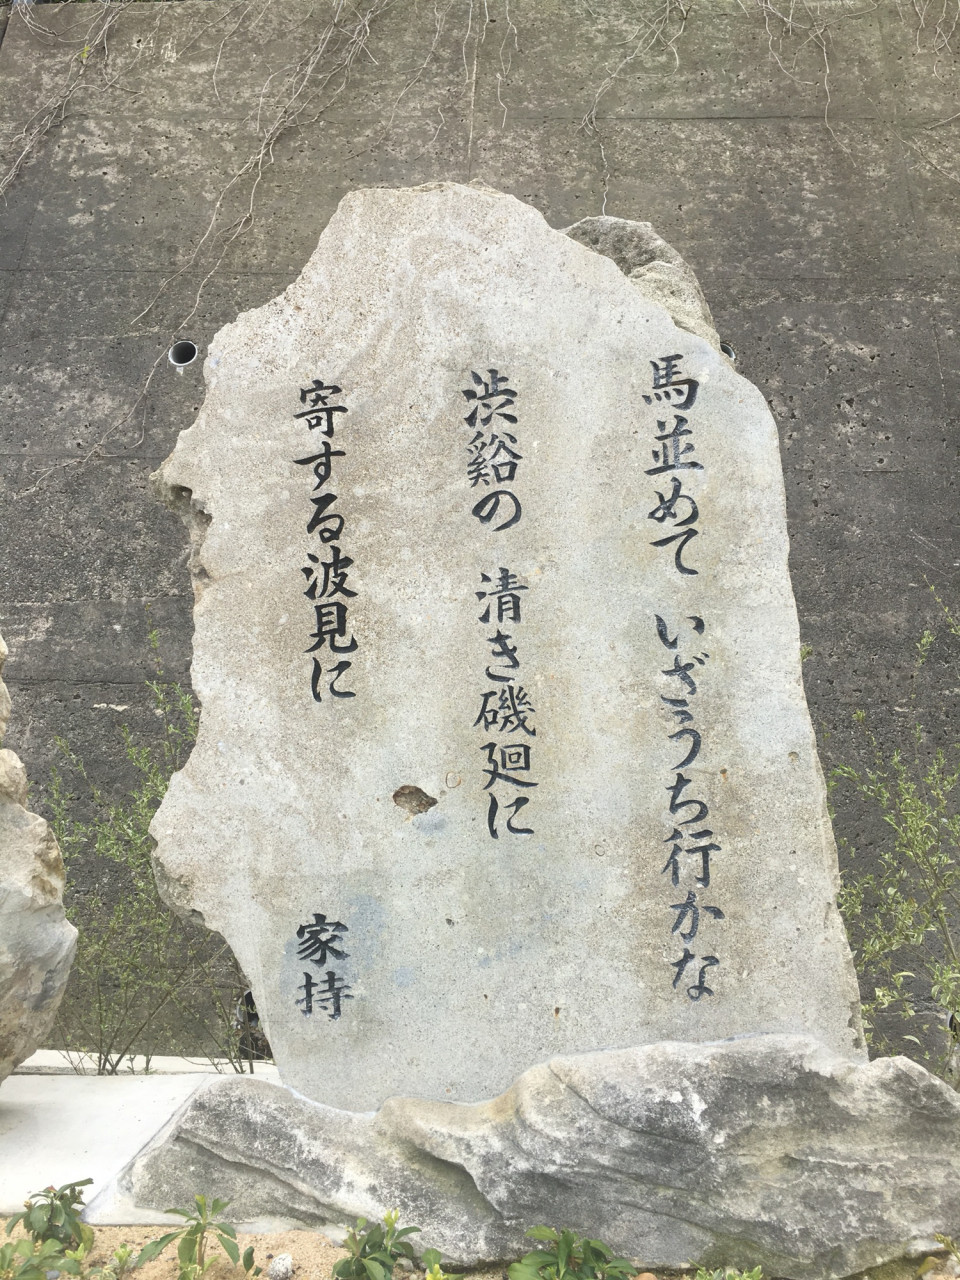 馬並めて いざうち行かな
渋谿の 清き磯廻に
寄する波見に 家持